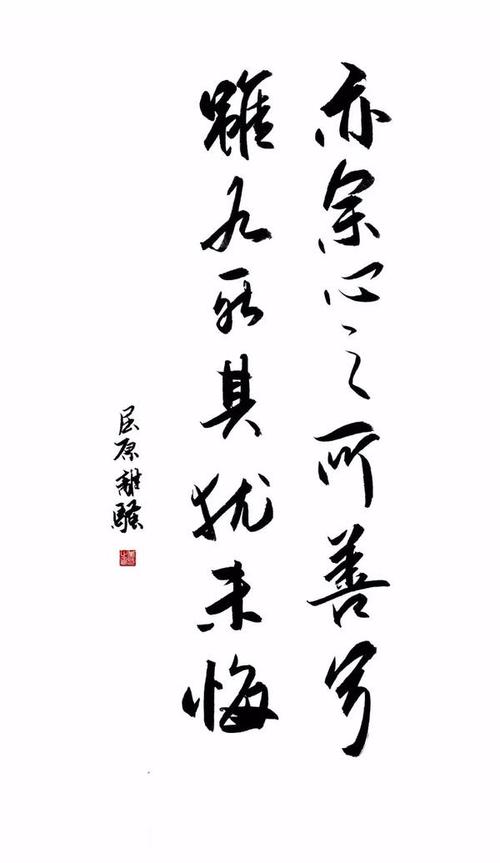 亦余心之所善兮
雖九死其犹未悔
屈原離騷